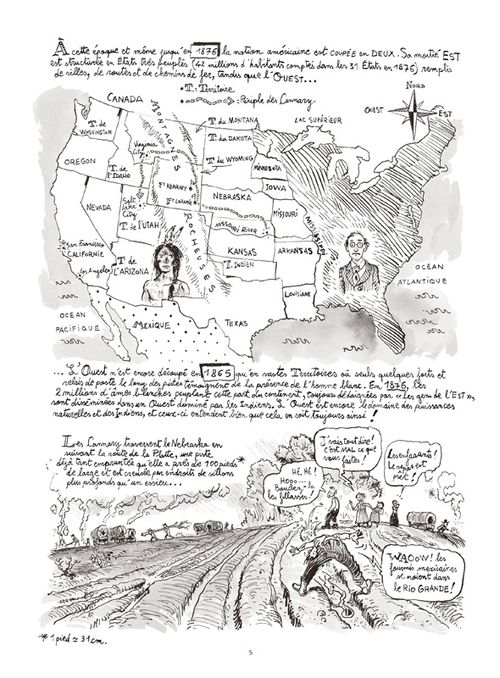 À cette époque et même jusqu'en 1876 la nation américaine est COUPÉE en DEUX. Sa moitié EST
est structurée en États très peuplés (42 millions d'habitants comptés dans les 31 États en 1876) remplis
de villes, de routes et de chemins de fer, tandis que l'OUEST...
T. = Territoire
= Périple des Cannary.
NORD
OUEST
EST
CANADA
LAC SUPÉRIEUR
T. de WASHINGTON
MONTAGNES
ROCHEUSES
Virginia City
T. du MONTANA
T. du DAKOTA
T. du WYOMING
OREGON
T. de l'IDAHO
MINNESOTA
Ft KEARNY
Ft LARAMIE
IOWA
NEBRASKA
NEVADA
Salt Lake City
MISSOURI RIVER
MISSOURI
T. de l'UTAH
San Francisco
CALIFORNIE
KANSAS
ARKANSAS
MISSISSIPPI
Los Angeles
T. de L'ARIZONA
T. INDIEN
OCÉAN
ATLANTIQUE
OCÉAN
PACIFIQUE
MEXIQUE
TEXAS
LOUISIANE
... L'Ouest n'est encore découpé en 1865 qu'en vastes Territoires où seuls quelques forts et
relais de poste le long des pistes témoignent de la présence de l'homme blanc. En 1876, les
2 millions d'âmes blanches peuplant cette part du continent, toujours désignées par « Les gens de l'EST »,
sont disséminées dans un Ouest dominé par les Indiens. L'Ouest est encore le domaine des puissances
naturelles et des Indiens, et ceux-ci entendent bien que cela en soit toujours ainsi !
Les Cannary traversent le Nebraska en
suivant la route de la Platte, une piste
déjà tant empruntée qu'elle a près de 100 pieds*
de large et est creusée par endroits de sillons
plus profonds qu'un essieu...
HÉ, HÉ !
HOOO...
Boudez là
les fillasses !
J'vais tout dire !
c'est MAL ce que
vous faites !
Les enfants !
Le repas est
prêt !
WAOOW ! les
fourmis mexicaines
se noient dans
le RIO GRANDE !
* 1 pied ≃ 31 cm.
5